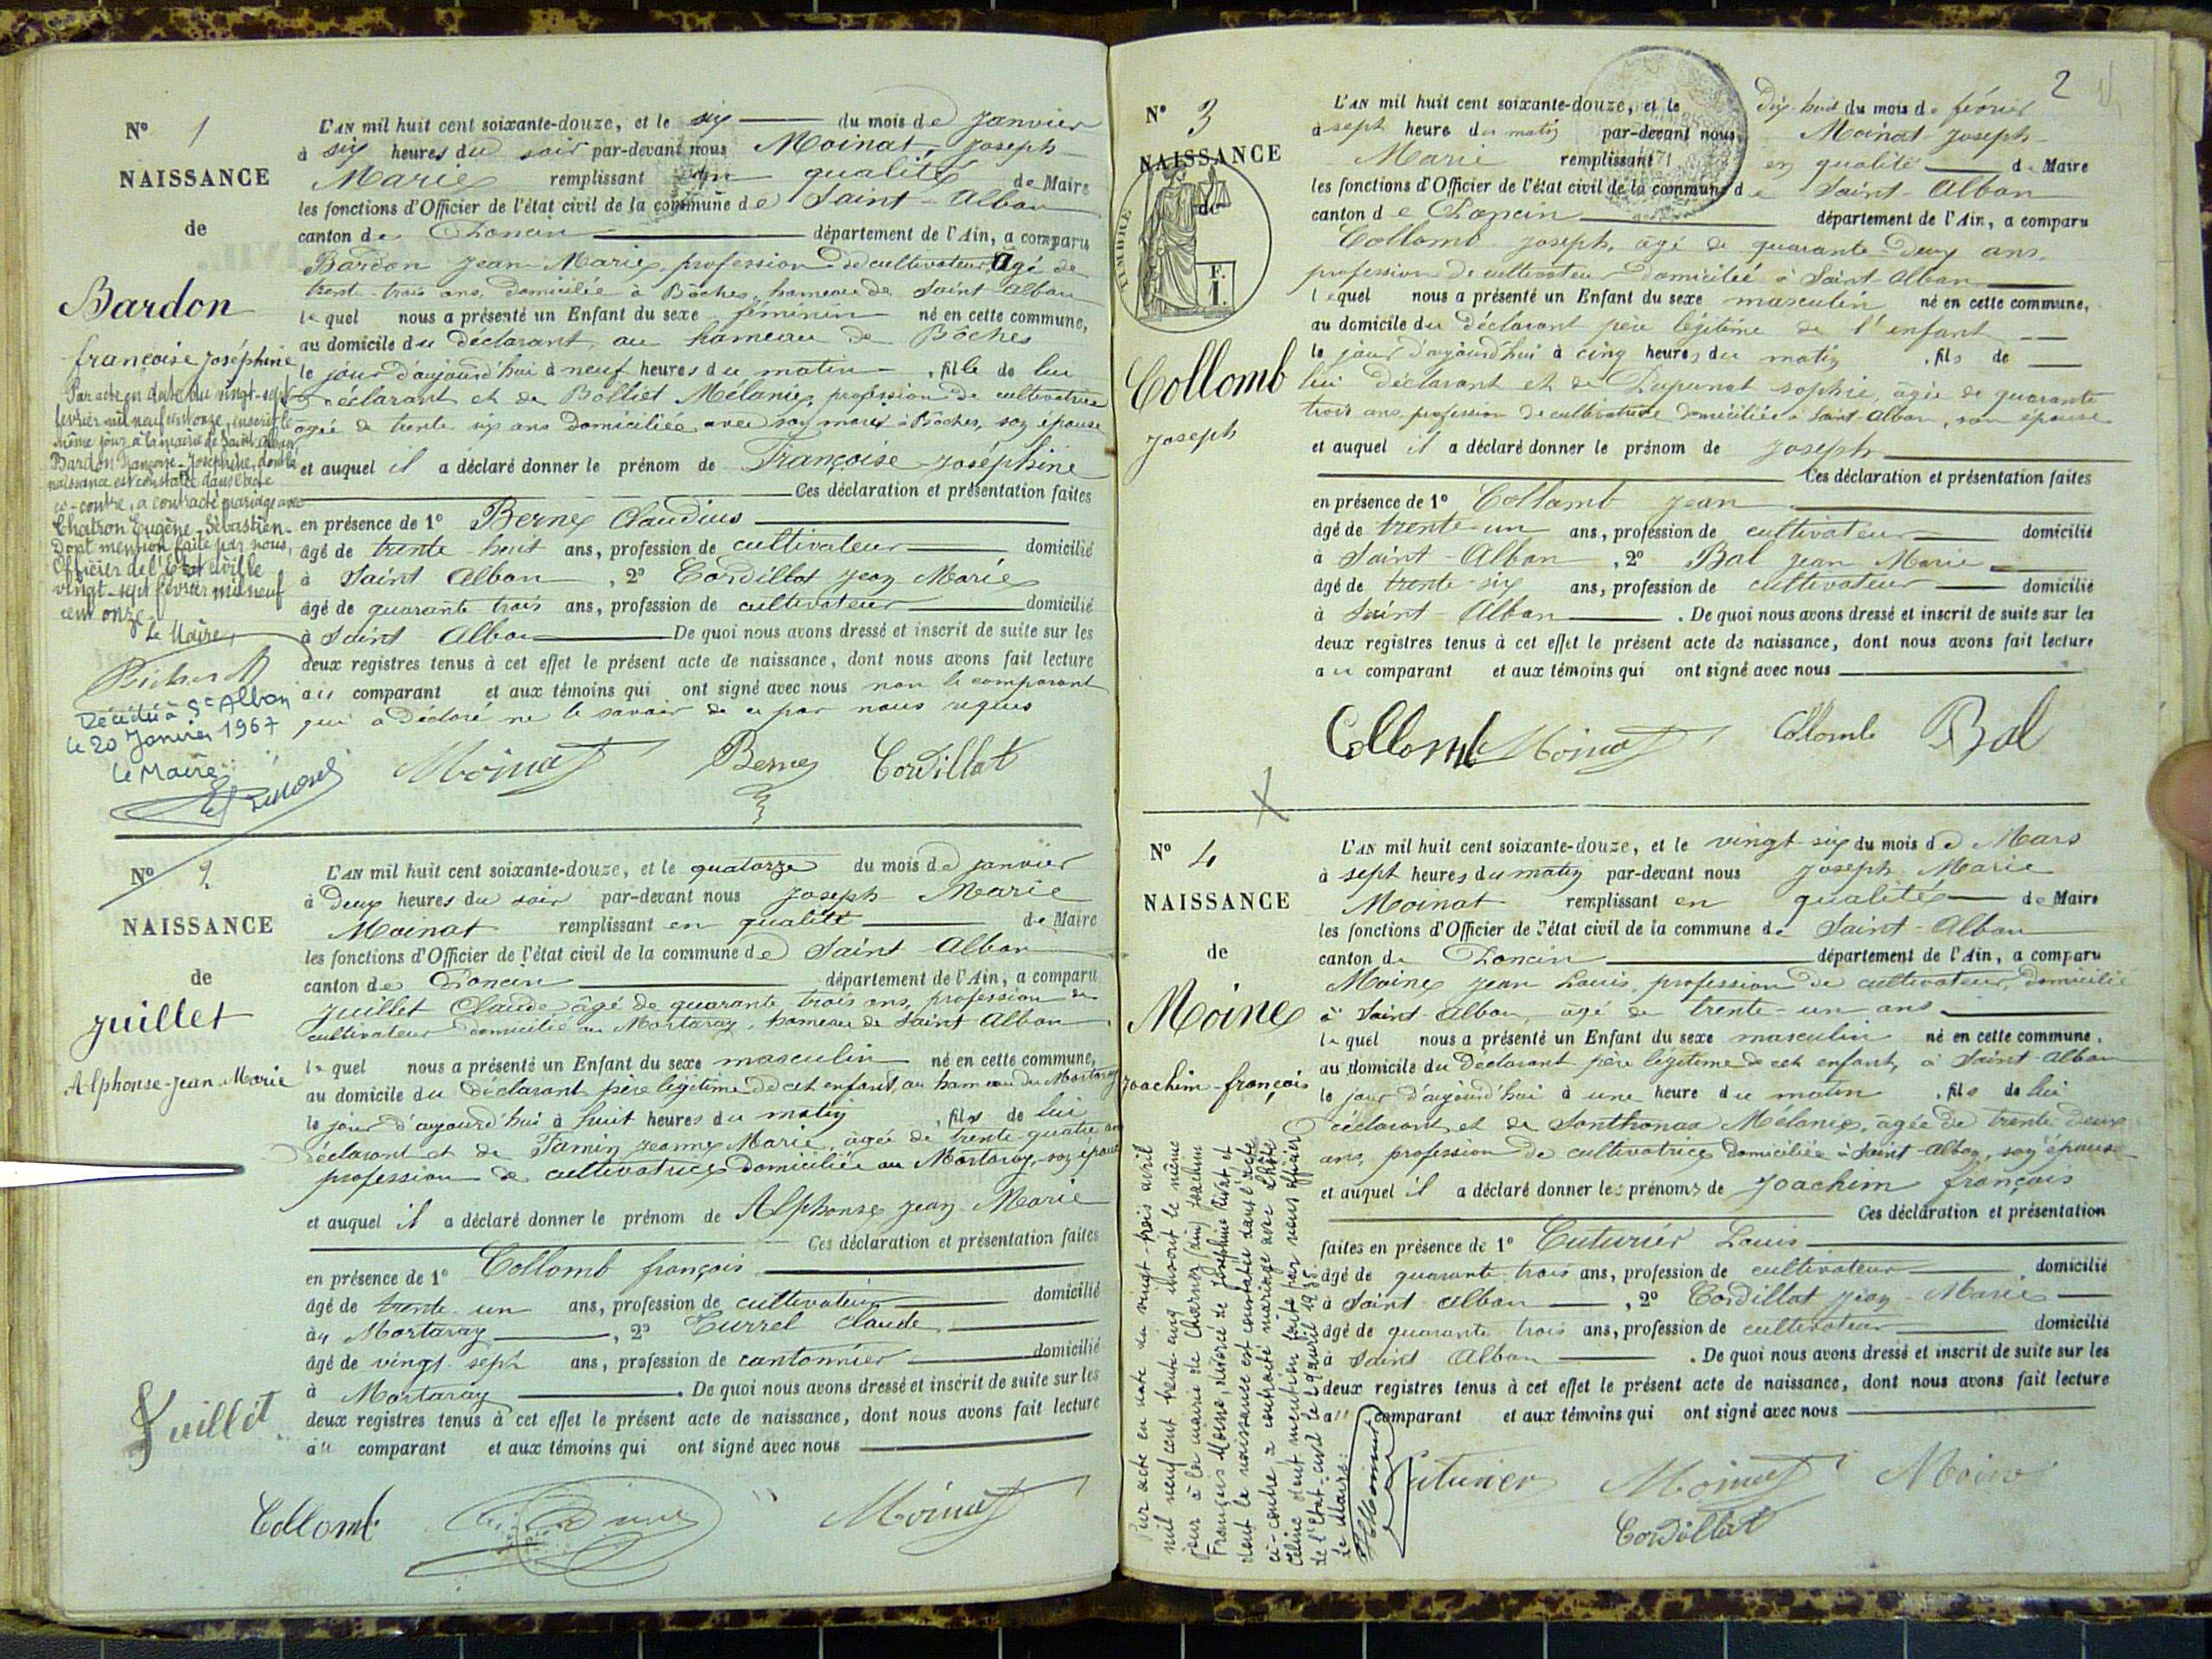 N° 1
NAISSANCE
de
Bardon
françoise Joséphine
Par acte en date du vingt-sept
février mil neuf cent onze, inscrit le
même jour à la mairie de Saint-Alban
Bardon Françoise-Joséphine, dont la
naissance est constatée dans l'acte
ci-contre, a contracté mariage avec
Chatron Eugène-Sébastien.
Dont mention faite par nous,
Officier de l'état civil le
vingt-sept février mil neuf
cent onze.
Le Maire,
Décédée à St Alban
le 20 Janvier 1967
Le Maire
L'AN mil huit cent soixante-douze, et le six du mois de Janvier
à six heures du soir par-devant nous Moinat, Joseph
Marie remplissant en qualité de Maire
les fonctions d'Officier de l'état civil de la commune de Saint-Alban
canton de Poncin département de l'Ain, a comparu
Bardon Jean Marie, profession de cultivateur, Agé de
trente-trois ans, domicilié à Bôches, hameau de Saint Alban
lequel nous a présenté un Enfant du sexe féminin né en cette commune,
au domicile du déclarant, au hameau de Bôches
le jour d'aujourd'hui à neuf heures du matin, fille de lui
déclarant et de Bolliet Mélanie, profession de cultivatrice
agée de trente six ans domiciliée avec son mari à Bôches, son épouse
et auquel il a déclaré donner le prénom de Françoise-Joséphine
Ces déclaration et présentation faites
en présence de 1° Berne Claudius
âgé de trente-huit ans, profession de cultivateur domicilié
à Saint Alban, 2° Cordillat Jean Marie
âgé de quarante trois ans, profession de cultivateur domicilié
à Saint Alban De quoi nous avons dressé et inscrit de suite sur les
deux registres tenus à cet effet le présent acte de naissance, dont nous avons fait lecture
au comparant et aux témoins qui ont signé avec nous non le comparant
qui a déclaré ne le savoir de ce par nous requis
Moinat Berne Cordillat
N° 2
NAISSANCE
de
Juillet
Alphonse-Jean-Marie
L'AN mil huit cent soixante-douze, et le quatorze du mois de janvier
à deux heures du soir par-devant nous Joseph Marie
Moinat remplissant en qualité de Maire
les fonctions d'Officier de l'état civil de la commune de Saint Alban
canton de Poncin département de l'Ain, a comparu
Juillet Claude âgé de quarante-trois ans, profession de
cultivateur domicilié au Mortaray, hameau de Saint Alban
lequel nous a présenté un Enfant du sexe masculin né en cette commune,
au domicile du déclarant père légitime de cet enfant, au hameau du Mortaray
le jour d'aujourd'hui à huit heures du matin, fils de lui
déclarant et de Tamin Jeanne Marie, âgée de trente-quatre ans
profession de cultivatrice domiciliée au Mortaray, son épouse
et auquel il a déclaré donner le prénom de Alphonse Jean-Marie
Ces déclaration et présentation faites
en présence de 1° Collomb françois
âgé de trente-un ans, profession de cultivateur domicilié
au Mortaray, 2° Curret Claude
âgé de vingt sept ans, profession de cantonnier domicilié
à Mortaray. De quoi nous avons dressé et inscrit de suite sur les
deux registres tenus à cet effet le présent acte de naissance, dont nous avons fait lecture
au comparant et aux témoins qui ont signé avec nous
Juillet
Collomb Moinat
2
N° 3
NAISSANCE
de
TIMBRE
F.
I.
Collomb
Joseph
L'AN mil huit cent soixante-douze, et le Dix-huit du mois de février
à sept heure du matin par-devant nous, Moinat Joseph
Marie remplissant en qualité de Maire
les fonctions d'Officier de l'état civil de la commune de Saint-Alban
canton de Poncin département de l'Ain, a comparu
Collomb Joseph, âgé de quarante-deux ans,
profession de cultivateur domicilié à Saint-Alban
lequel nous a présenté un Enfant du sexe masculin né en cette commune,
au domicile du déclarant père légitime de l'enfant
le jour d'aujourd'hui à cinq heures du matin, fils de
lui déclarant et de Dupunat Sophie, âgée de quarante
trois ans, profession de cultivatrice domiciliée à Saint Alban, son épouse
et auquel il a déclaré donner le prénom de Joseph
Ces déclaration et présentation faites
en présence de 1° Collomb Jean
âgé de trente-un ans, profession de cultivateur domicilié
à Saint-Alban, 2° Bal Jean Marie
âgé de trente-six ans, profession de cultivateur domicilié
à Saint-Alban. De quoi nous avons dressé et inscrit de suite sur les
deux registres tenus à cet effet le présent acte de naissance, dont nous avons fait lecture
au comparant et aux témoins qui ont signé avec nous
Collomb Moinat Collomb Bal
N° 4
NAISSANCE
de
Moine
Joachim-françois
Par acte en date du vingt-trois avril
mil neuf cent trente cinq inscrit le même
jour à la mairie de Charnoz (Ain) Joachim
François Moine, divorcé de Joséphine Rivat, et
dont la naissance est constatée dans l'acte
ci-contre a contracté mariage avec Lhôte
Céline dont mention faite par nous officier
de l'Etat-civil le 29 avril 1935.
Le Maire:
L'AN mil huit cent soixante-douze, et le vingt-six du mois de Mars
à sept heures du matin par-devant nous Joseph Marie
Moinat remplissant en qualité de Maire
les fonctions d'Officier de l'état civil de la commune de Saint-Alban
canton de Poncin département de l'Ain, a comparu
Moine Jean Louis, profession de cultivateur, domicilié
à Saint Alban, âgé de trente-un ans.
lequel nous a présenté un Enfant du sexe masculin né en cette commune,
au domicile du déclarant père légitime de cet enfant, à Saint-Alban
le jour d'aujourd'hui à une heure du matin, fils de lui
déclarant et de Sonthonax Mélanie, âgée de trente deux
ans, profession de cultivatrice domiciliée à Saint-Alban, son épouse
et auquel il a déclaré donner les prénoms de Joachim françois
Ces déclaration et présentation
faites en présence de 1° Cuturier Louis
âgé de quarante-trois ans, profession de cultivateur domicilié
à Saint-Alban, 2° Cordillat Jean-Marie
âgé de quarante trois ans, profession de cultivateur domicilié
à Saint Alban. De quoi nous avons dressé et inscrit de suite sur les
deux registres tenus à cet effet le présent acte de naissance, dont nous avons fait lecture
au comparant et aux témoins qui ont signé avec nous
Cuturier Moinat Moine
Cordillat